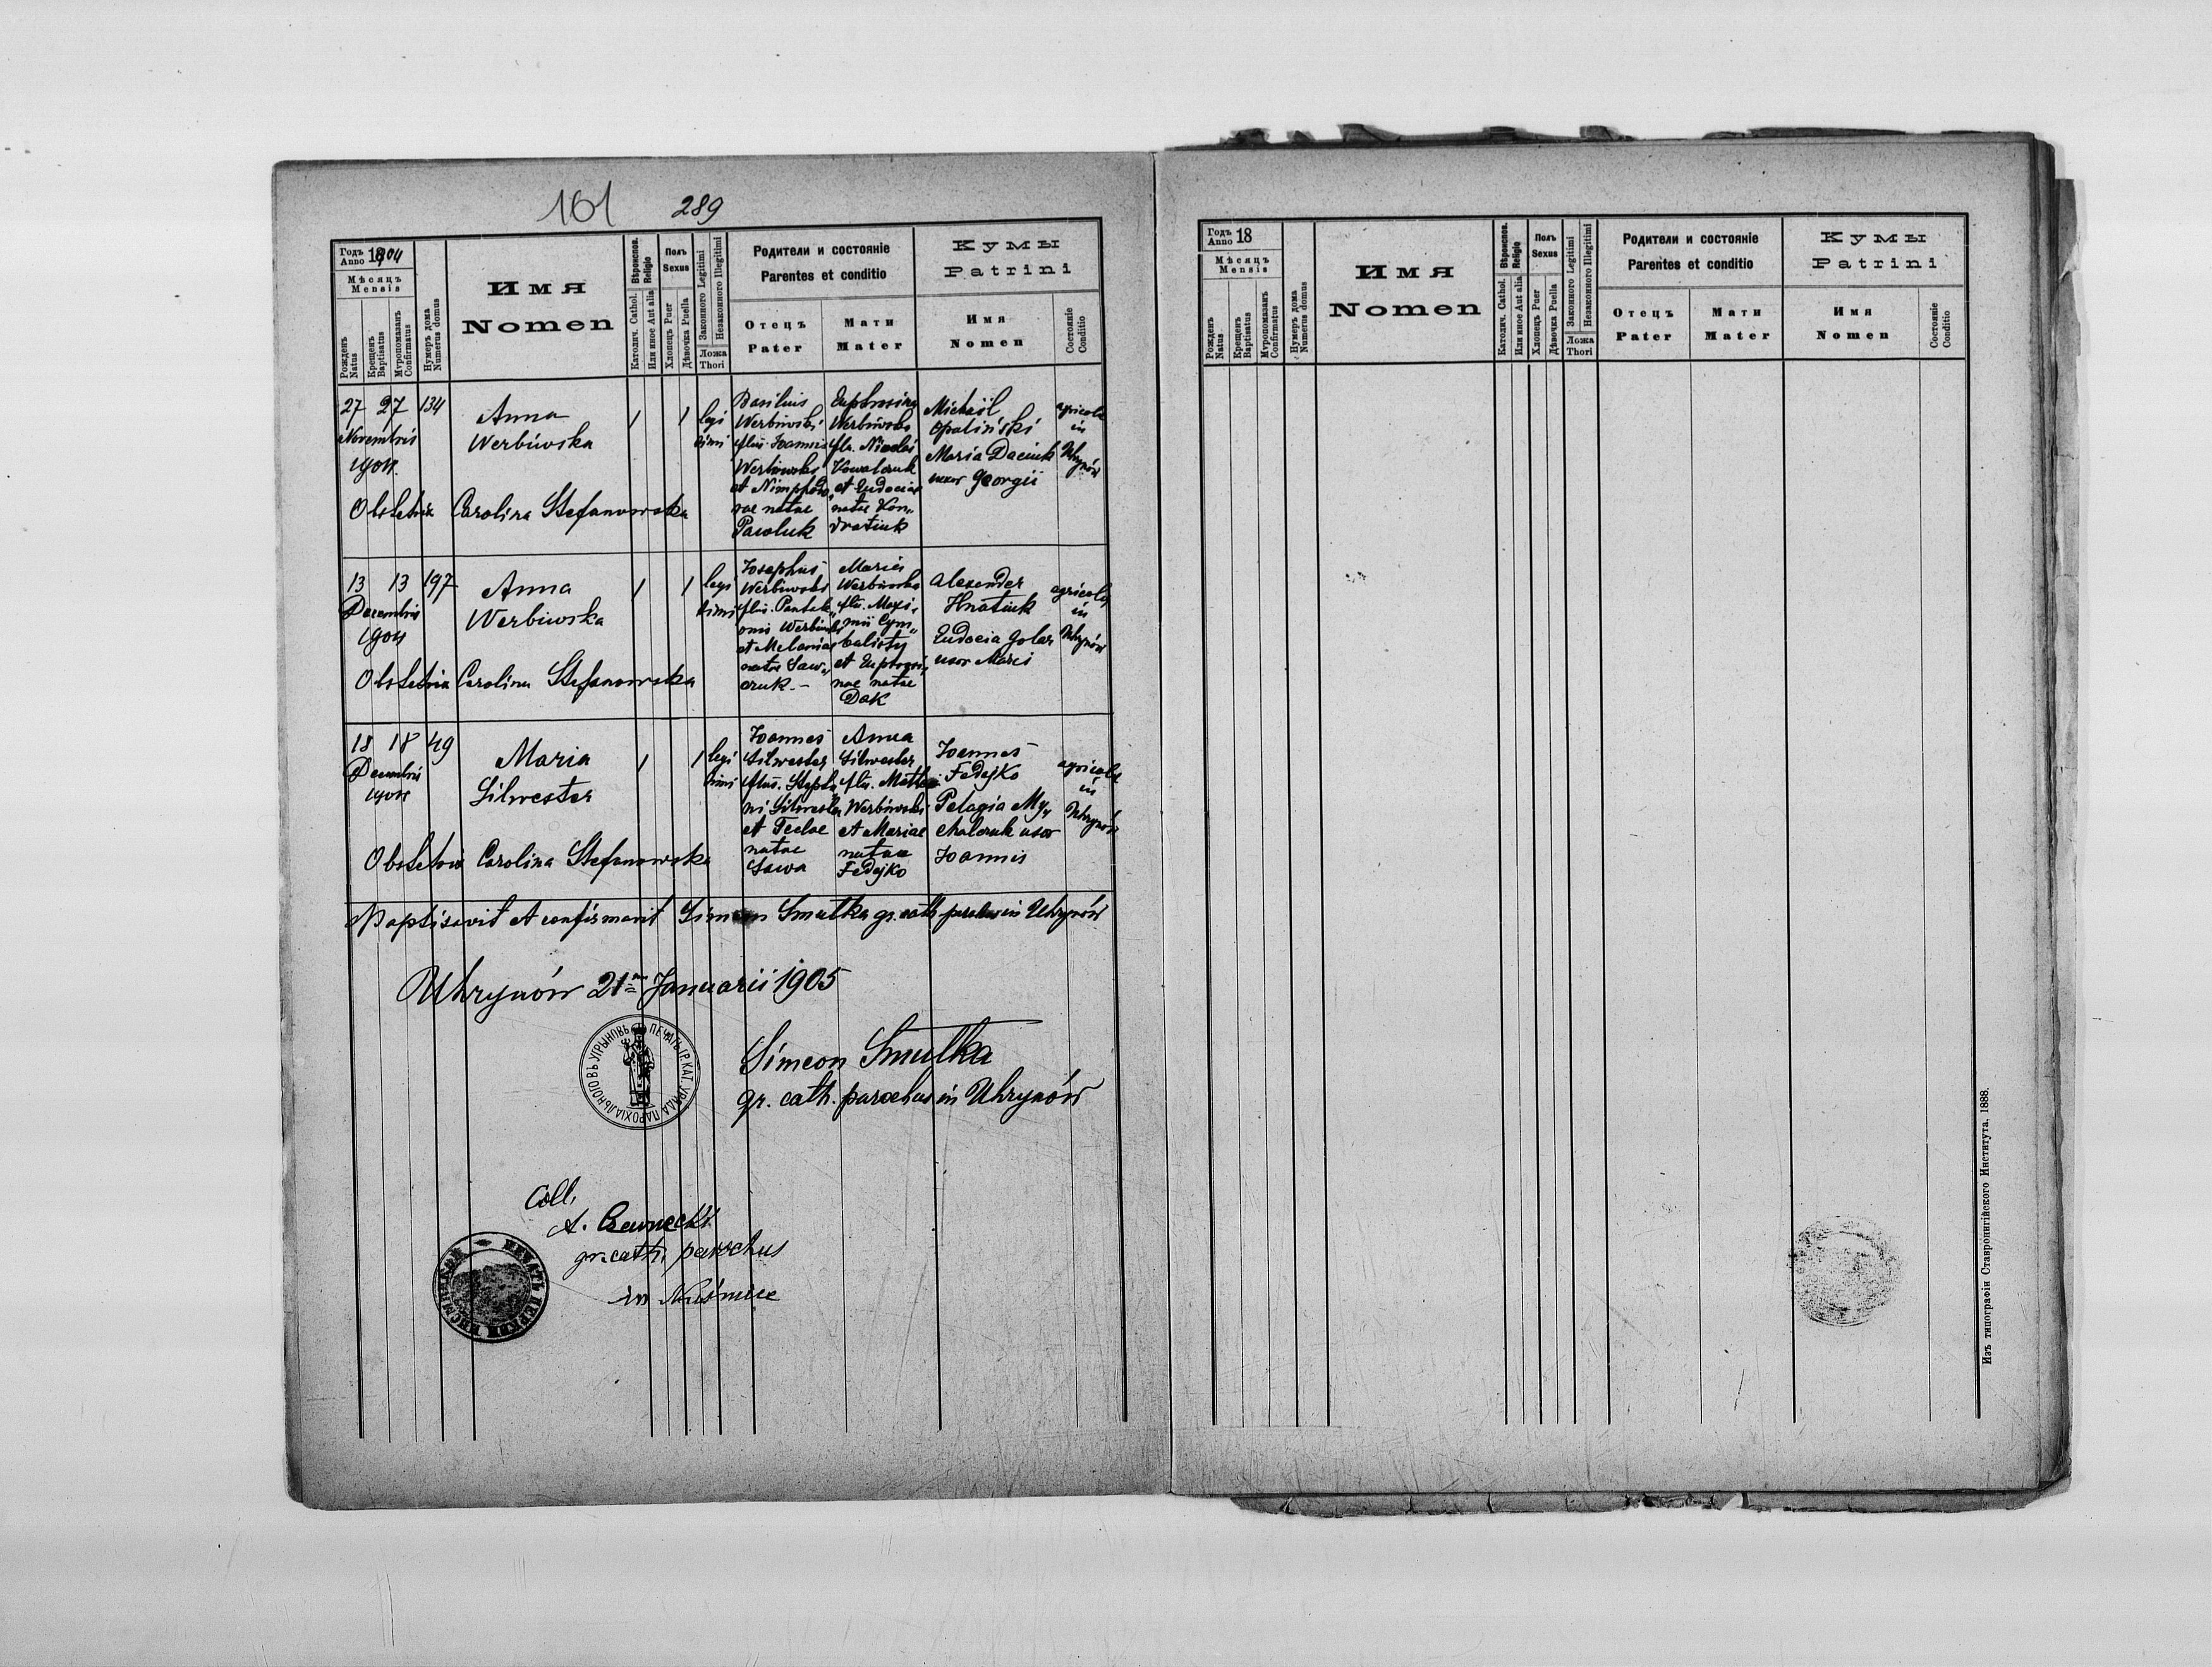 161 289
Годъ Anno 1904
Мѣсяцъ
Mensis
Рожденъ Natus
Крещенъ Baptisatus
Мѵропомазанъ Confirmatus
Нумеръ дома Numerus domus
Имя
Nomen
Вѣроиспов. Religio
Католич. Cathol.
Или иное Aut alia
Полъ
Sexus
Хлопецъ Puer
Дѣвочка Puella
Законного Legitimi
Незаконного Illegitimi
Ложа
Thori
Родители и состояніе
Parentes et conditio
Отецъ
Pater
Мати
Mater
Кумы
Patrini
Имя
Nomen
Состояніе
Conditio
27 27 134
Novembris
1904
Anna
Werbiwska
1 1 legi
timi
Basilius
Werbiwski
filius Joannis
Werbiwski
et Nimphodo„
rae natae
Pawluk
Euphrosina
Werbiwska
fila Nicolai
Kowalczuk
et Eudociae
natae Kon„
dratiuk
Michaël
Opaliński
Maria Daciuk
uxor Georgii
agricolae
in
Uhrynów
Obstetrix Carolina Stefanowska
13 13 197
Decembris
1904
Anna
Werbiwska
1 1 legi
timi
Josephus
Werbiwski
filius Pantele„
onis Werbiwski
et Melaniae
natae Saw„
czuk.–
Maria
Werbiwska
filia Maxi„
mii Cym„
balisty
et Euphrosi„
nae natae
Dak
Alexander
Hnatiuk
Eudocia Golar
uxor Marci
agricolae
in
Uhrynów
Obstetrix Carolina Stefanowska
18 18 49
Decembris
1904
Maria
Silwester
1 1 legi
timi
Joannes
Silwester
filius Stepha„
ni Silwester
et Teclae
natae
Sawa
Anna
Silwester
filia Matthaei
Werbiwski
et Mariae
natae
Fedejko
Joannes
Fedejko
Pelagia My„
chalczuk uxor
Joannis
agricolae
in
Uhrynów
Obstetrix Carolina Stefanowska
Baptisavit et confirmavit Simeon Smulka gr. cath parochus in Uhrynów
Uhrynów 21 Januarii 1905
ПЕЧАТЬ ГР. КАТ. УРЯДА ПАРОХІАЛЬНОГО ВЪ УГРЫНОВЪ
Simeon Smulka
gr. cath. parochus in Uhrynów
Coll.
A. Czerwnecki
gr. cath. parochus
in Nuśmice
ПЕЧАТЬ ЦЕРКВИ
Годъ Anno 18
Мѣсяцъ
Mensis
Рожденъ Natus
Крещенъ Baptisatus
Мѵропомазанъ Confirmatus
Нумеръ дома Numerus domus
Имя
Nomen
Вѣроиспов. Religio
Католич. Cathol.
Или иное Aut alia
Полъ
Sexus
Хлопецъ Puer
Дѣвочка Puella
Законного Legitimi
Незаконного Illegitimi
Ложа
Thori
Родители и состояніе
Parentes et conditio
Отецъ
Pater
Мати
Mater
Кумы
Patrini
Имя
Nomen
Состояніе
Conditio
Изъ типографіи Ставропигійского Института. 1888.